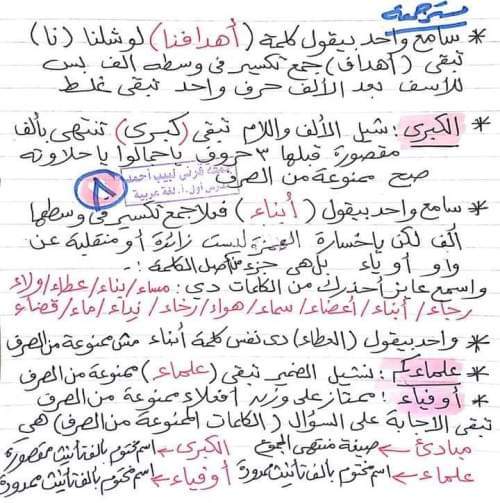 مسترجمعة
* سامع واحد بيقول كلمة (أهدافنا) لو شلنا (نا)
تبقى (أهداف) جمع تكسير فى وسطه ألف بس
للأسف بعد الألف حرف واحد تبقى غلط
* الكبرى : شيل الألف واللام تبقى (كبرى) تنتهى بألف
مقصورة قبلها ٣ حروف ياحلاوته
صح ممنوعة من الصرف
لبيب أحمد
مدرس أول أ. لغة عربية
٨
* سامع واحد بيقول (أبناء) فعلا جمع تكسير فى وسطها
ألف لكن ياخسارة الهمزة ليست زائدة أو منقلبة عن
واو أو ياء بل هى جزء من أصل الكلمة :
واسمع عايز أحذرك من الكلمات دي : مساء / بناء / عطاء / ولاء
رجاء / أبناء / أعضاء / سماء / هواء / رخاء / نداء / ماء / قضاء
* واحد بيقول (العطاء) دى نفس كلمة أبناء مش ممنوعة من الصرف
* علماء : نشيل الضمير تبقى (علماء) ممنوعة من الصرف
* أوفياء : ممتاز على وزن أفعلاء ممنوعة من الصرف
تبقى الإجابة على السؤال (الكلمات الممنوعة من الصرف) هى
مبادئ ← صيغة منتهى الجموع الكبرى ← اسم مختوم بألف تأنيث مقصورة
علماء ← اسم مختوم بألف تأنيث ممدودة أوفياء ← اسم مختوم بألف تأنيث ممدودة